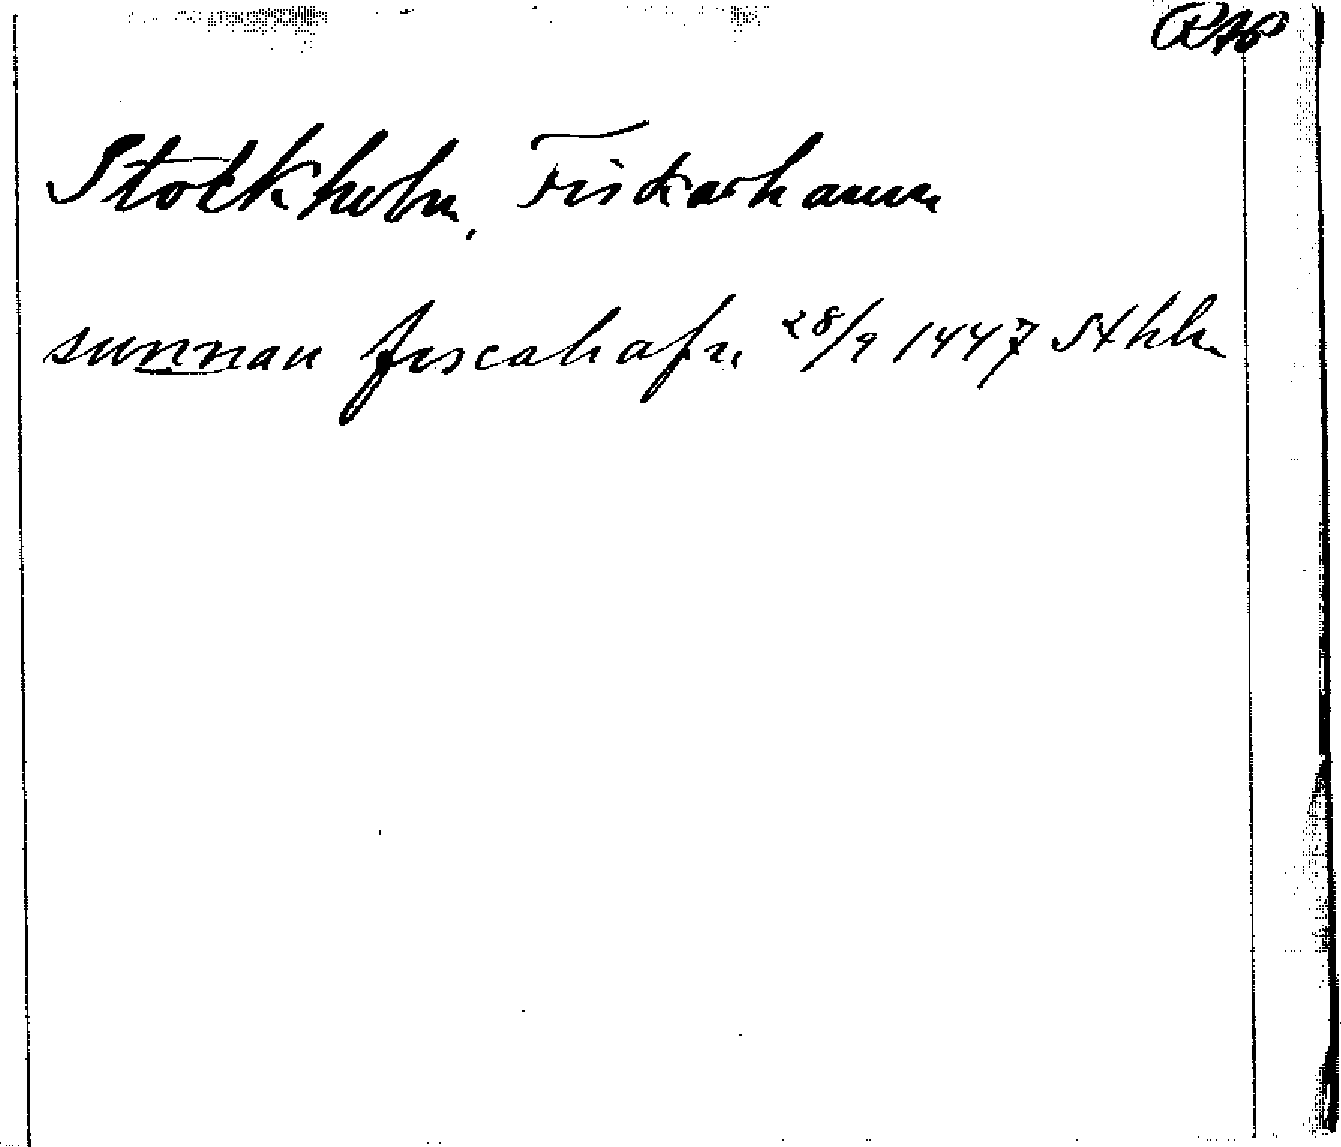 RAP
Stockholm, Fiskarhamn
sunnan fiscahafn 28/9 1447 Sthlm